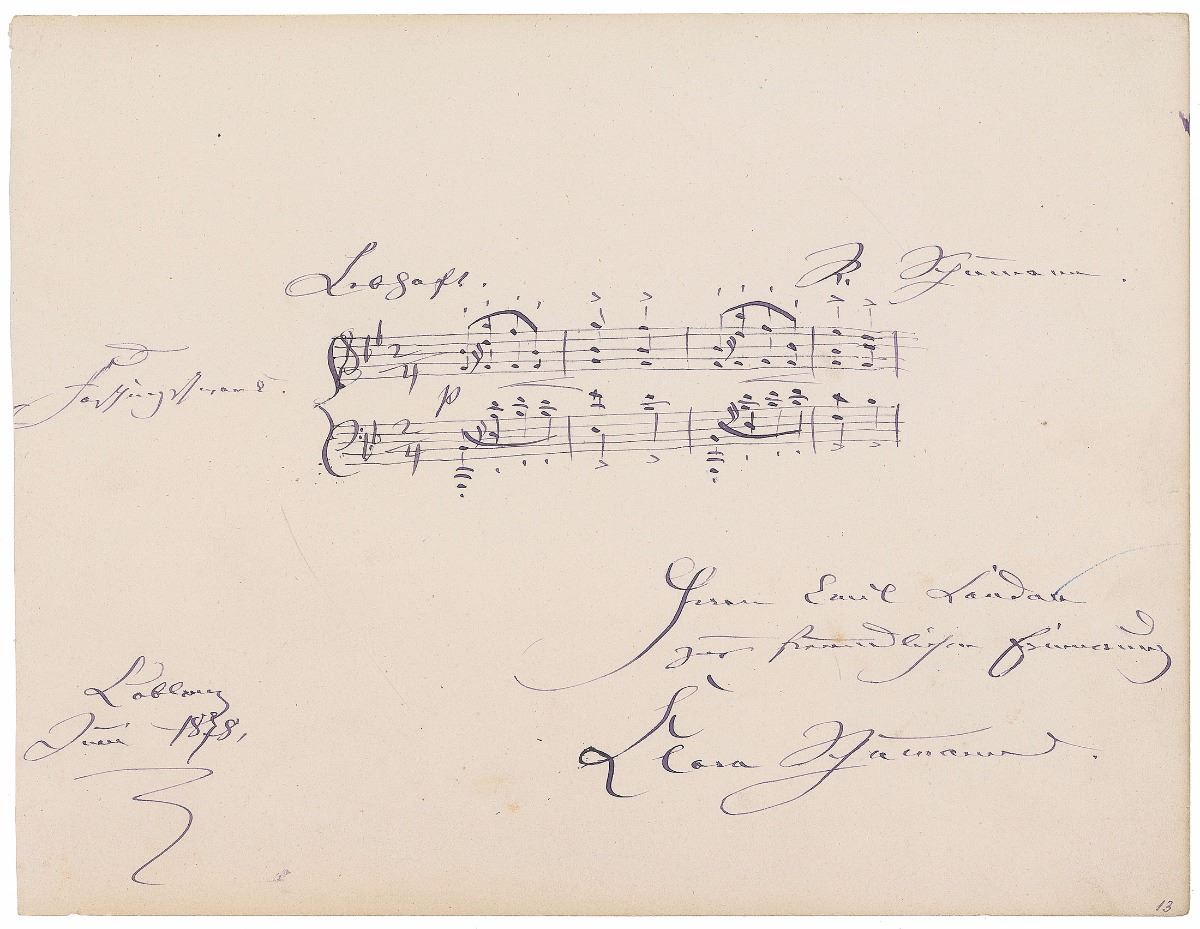 Lebhaft.
R. Schumann.
Faschingsschwank.
2
4
p
2
4
Herrn Emil Landau
zur freundlichen Erinnerung
Clara Schumann.
Coblenz
Juni 1878.
13